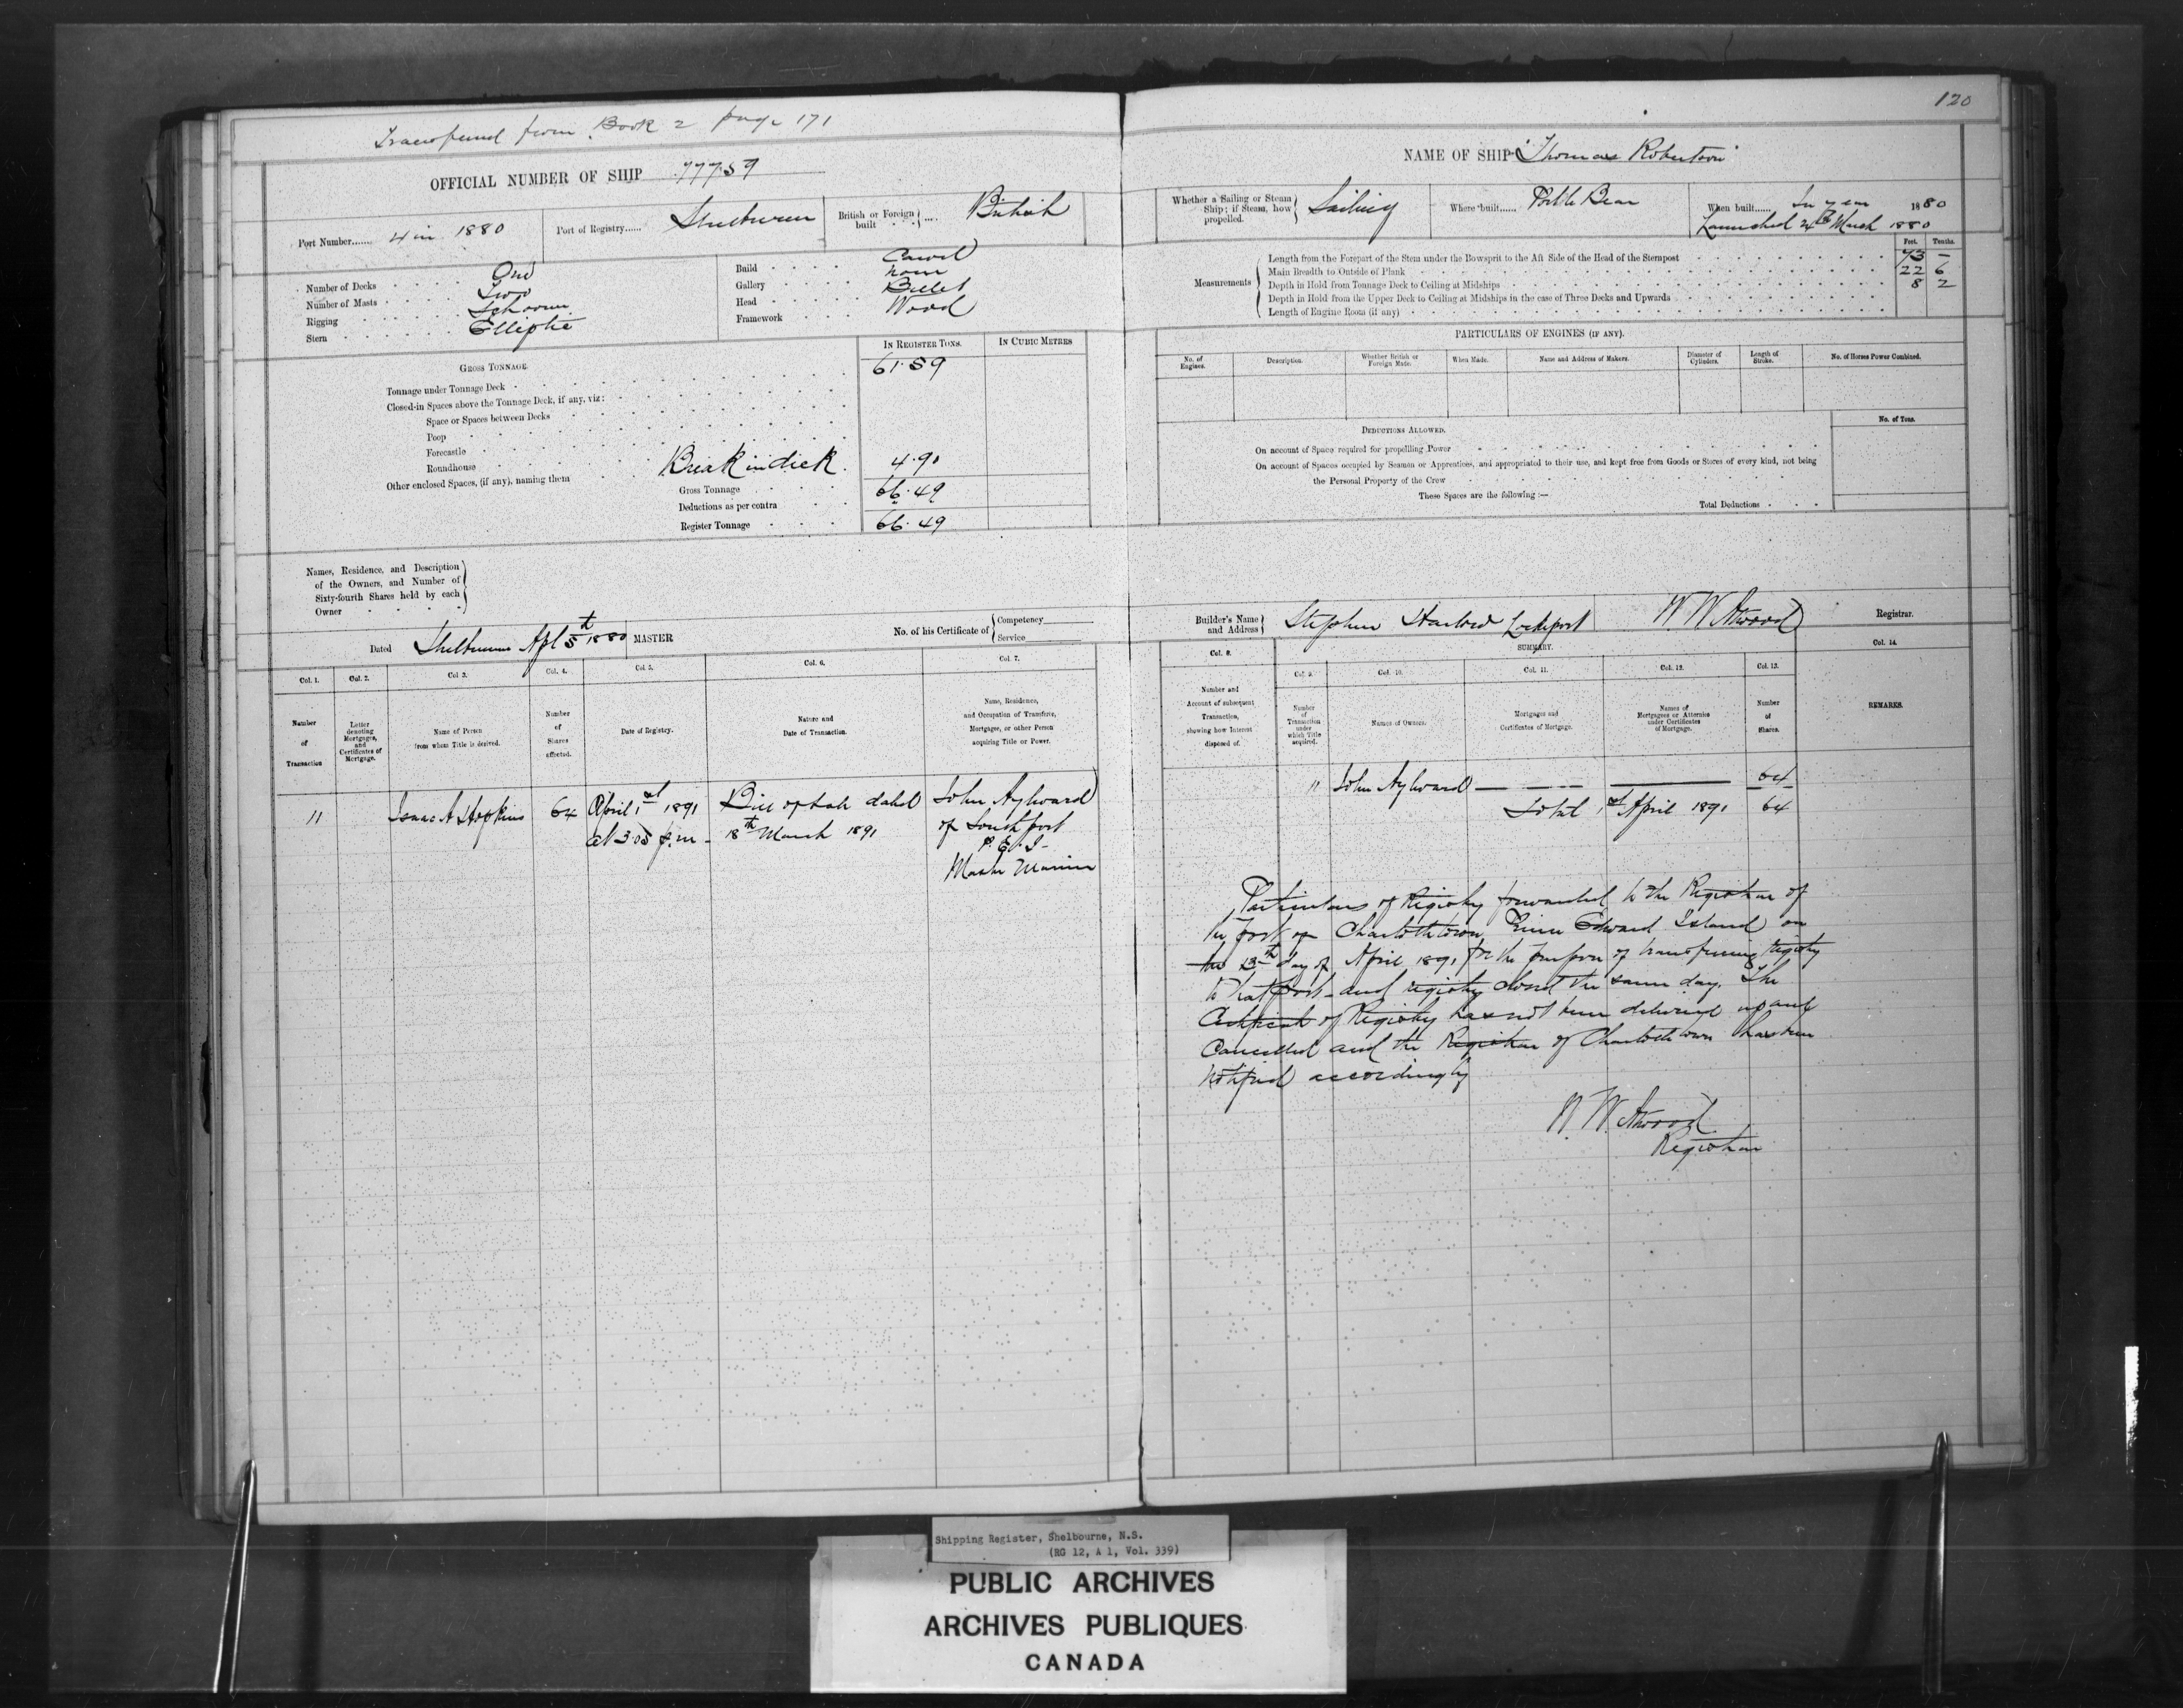 120
Transferred from Book 2 page 171
OFFICIAL NUMBER OF SHIP 77759
Port Number...... 4 in 1880
Port of Registry...... Shelburne
British or Foreign built .... British
Number of Decks One
Number of Masts Two
Rigging Schooner
Stern Elliptic
Build Carvel
Gallery none
Head Billet
Framework Wood
GROSS TONNAGE.
IN REGISTER TONS.
IN CUBIC METRES
Tonnage under Tonnage Deck 61.59
Closed-in Spaces above the Tonnage Deck, if any, viz:
Space or Spaces between Decks
Poop
Forecastle
Roundhouse
Other enclosed Spaces, (if any), naming them Break in deck. 4.90
Gross Tonnage 66.49
Deductions as per contra
Register Tonnage 66.49
Names, Residence, and Description
of the Owners, and Number of
Sixty-fourth Shares held by each
Owner
Dated Shelburne Apl 5th 1880 MASTER
No. of his Certificate of
Competency
Service
Col. 1.
Col. 2.
Col 3.
Col. 4.
Col 5.
Col. 6.
Col. 7.
Number of Transaction
Letter denoting Mortgages, and Certificates of Mortgage.
Name of Person from whom Title is derived.
Number of Shares affected.
Date of Registry.
Nature and Date of Transaction.
Name, Residence, and Occupation of Transferee, Mortgagee, or other Person acquiring Title or Power.
11 Isaac A Hopkins 64 April 1st 1891 Bill of sale dated John Aylward
at 3.05 p.m - 18th March 1891 of Southport
P. E. I-
Master Mariner
NAME OF SHIP "Thomas Robertson"
Whether a Sailing or Steam Ship; if Steam, how propelled. Sailing
Where built......
When built...... In year 1880
Launched 24th March 1880
Feet. Tenths.
Measurements
Length from the Forepart of the Stem under the Bowsprit to the Aft Side of the Head of the Sternpost 73 -
Main Breadth to Outside of Plank 22 6
Depth in Hold from Tonnage Deck to Ceiling at Midships 8 2
Depth in Hold from the Upper Deck to Ceiling at Midships in the case of Three Decks and Upwards
Length of Engine Room (if any)
PARTICULARS OF ENGINES (IF ANY).
No. of Engines.
Description.
Whether British or Foreign Made.
When Made.
Name and Address of Makers.
Diameter of Cylinders.
Length of Stroke.
No. of Horses Power Combined.
DEDUCTIONS ALLOWED.
No. of Tons.
On account of Space required for propelling Power
On account of Spaces occupied by Seamen or Apprentices, and appropriated to their use, and kept free from Goods or Stores of every kind, not being
the Personal Property of the Crew
These Spaces are the following :—
Total Deductions
Builder's Name and Address Stephen Lockeport
W. W. Atwood Registrar.
SUMMARY.
Col. 8.
Col. 9.
Col. 10.
Col. 11.
Col. 12.
Col. 13.
Col. 14.
Number and Account of subsequent Transaction, showing how Interest disposed of.
Number of Transaction under which Title acquired.
Names of Owners.
Mortgages and Certificates of Mortgage.
Names of Mortgagees or Attornies under Certificates of Mortgage.
Number of Shares.
REMARKS.
11 John Aylward 64
Total 1st April 1891 64
Particulars of Registry forwarded to the Registrar of
the port of Charlottetown Prince Edward Island on
the 13th day of April 1891 for the purpose of transferring registry
to that port - and registry closed the same day. The
Certificate of Registry has not been delivered up and
Cancelled and the Registrar of Charlottetown has been
notified accordingly
W. W. Atwood
Registrar
Shipping Register, Shelbourne, N.S.
(RG 12, A 1, Vol. 339)
PUBLIC ARCHIVES
ARCHIVES PUBLIQUES
CANADA